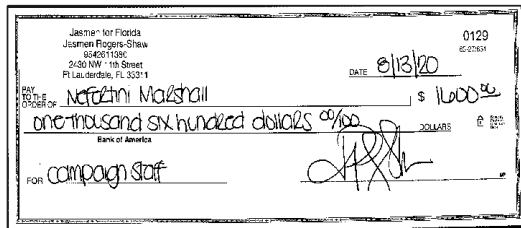 Jasmen for Florida
Jasmen Rogers-Shaw
2430 NW 11th Street
Ft Lauderdale, FL 33311
0129
DATE 8/13/20
PAY TO THE ORDER OF Nefertiti Marshall $ 1600 00
one thousand six hundred dollars 00/100 DOLLARS
Bank of America
FOR campaign staff